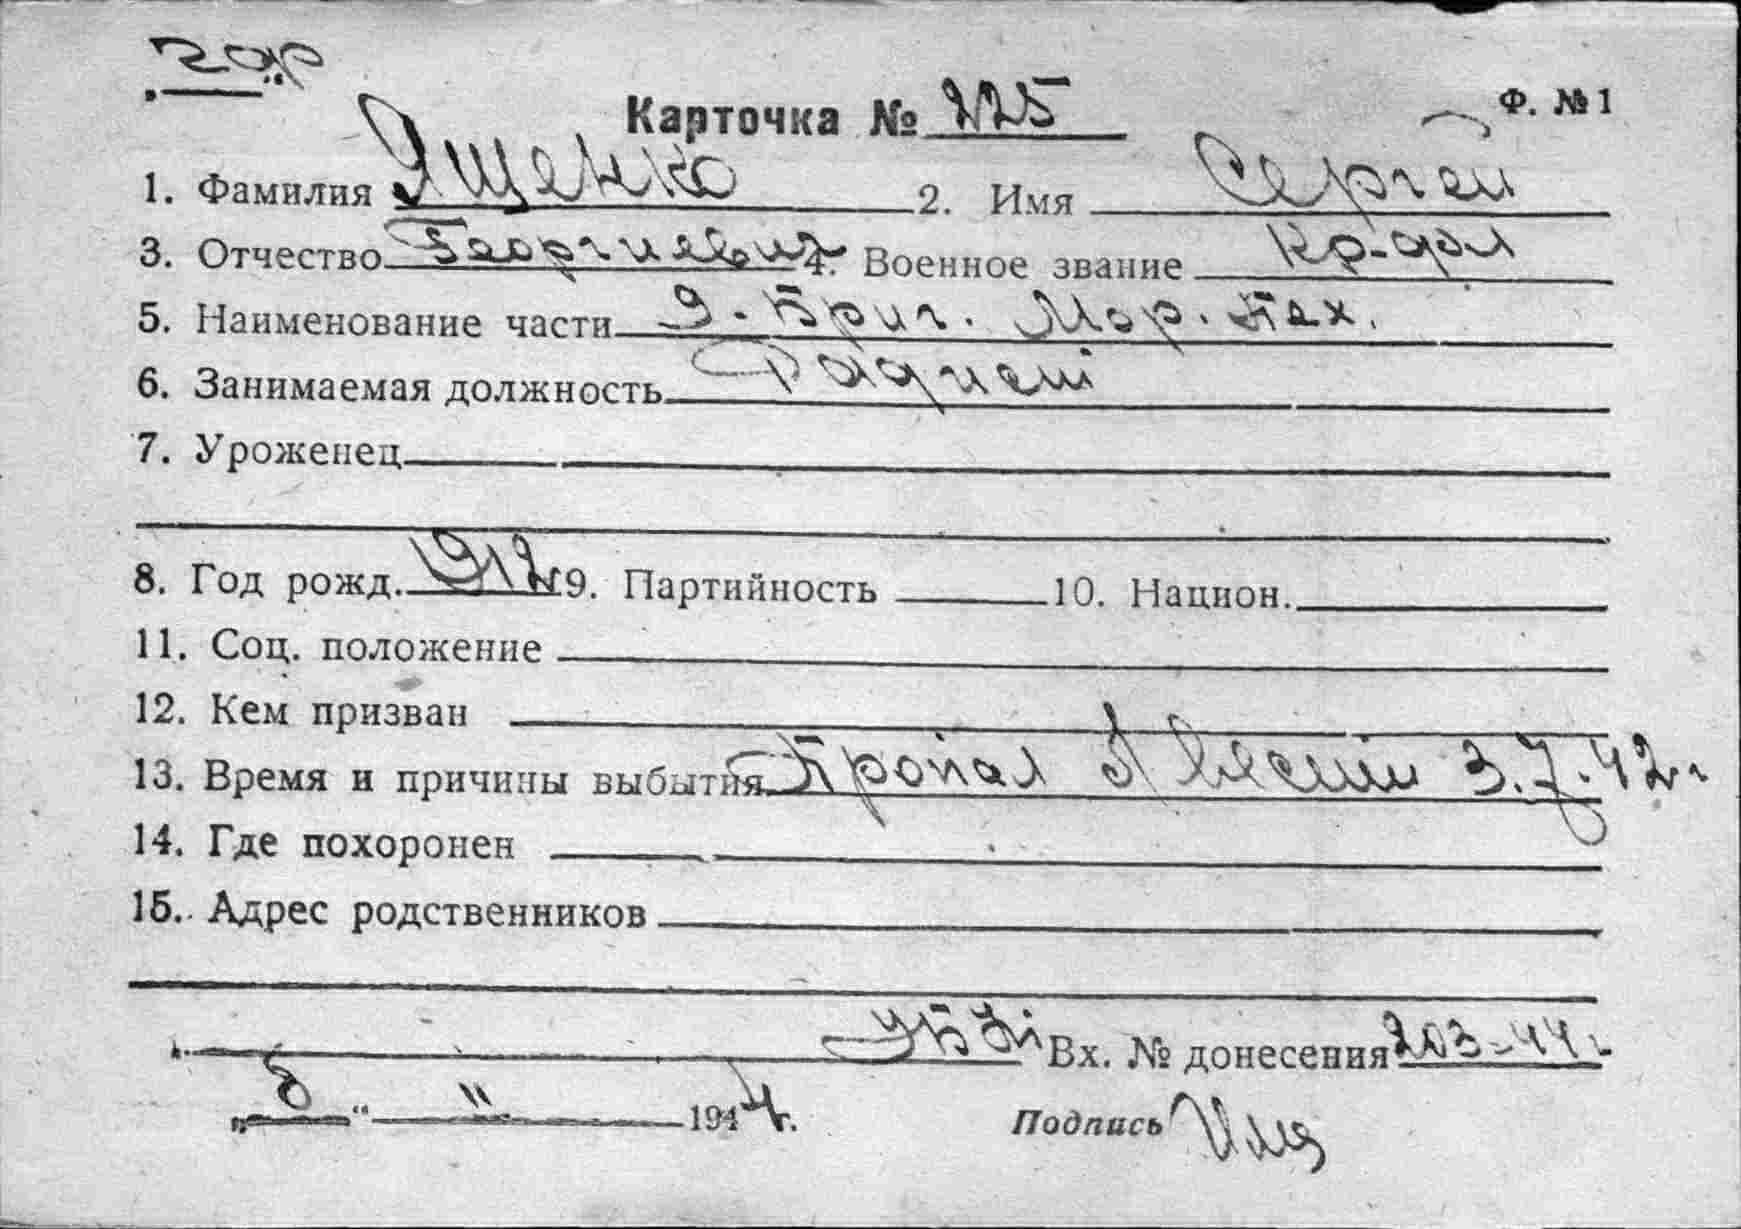 Карточка № 225
Ф. № 1
1. Фамилия Ященко 2. Имя Сергей
3. Отчество Георгиевич 4. Военное звание Кр-фл
5. Наименование части 9. Бриг. Мор. Пех.
6. Занимаемая должность Радист
7. Уроженец
8. Год рожд. 1912 9. Партийность 10. Национ.
11. Соц. положение
12. Кем призван
13. Время и причины выбытия Пропал без вести 3.7.42г
14. Где похоронен
15. Адрес родственников
Вх. № донесения 203-44г
„6“ 11 1944г.
Подпись